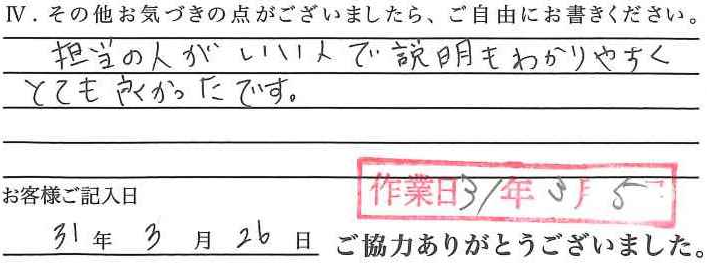 Ⅳ．その他お気づきの点がございましたら、ご自由にお書きください。
担当の人がいい人で説明もわかりやすく
とても良かったです。
お客様ご記入日
作業日31年3月5日
31年3月26日
ご協力ありがとうございました。